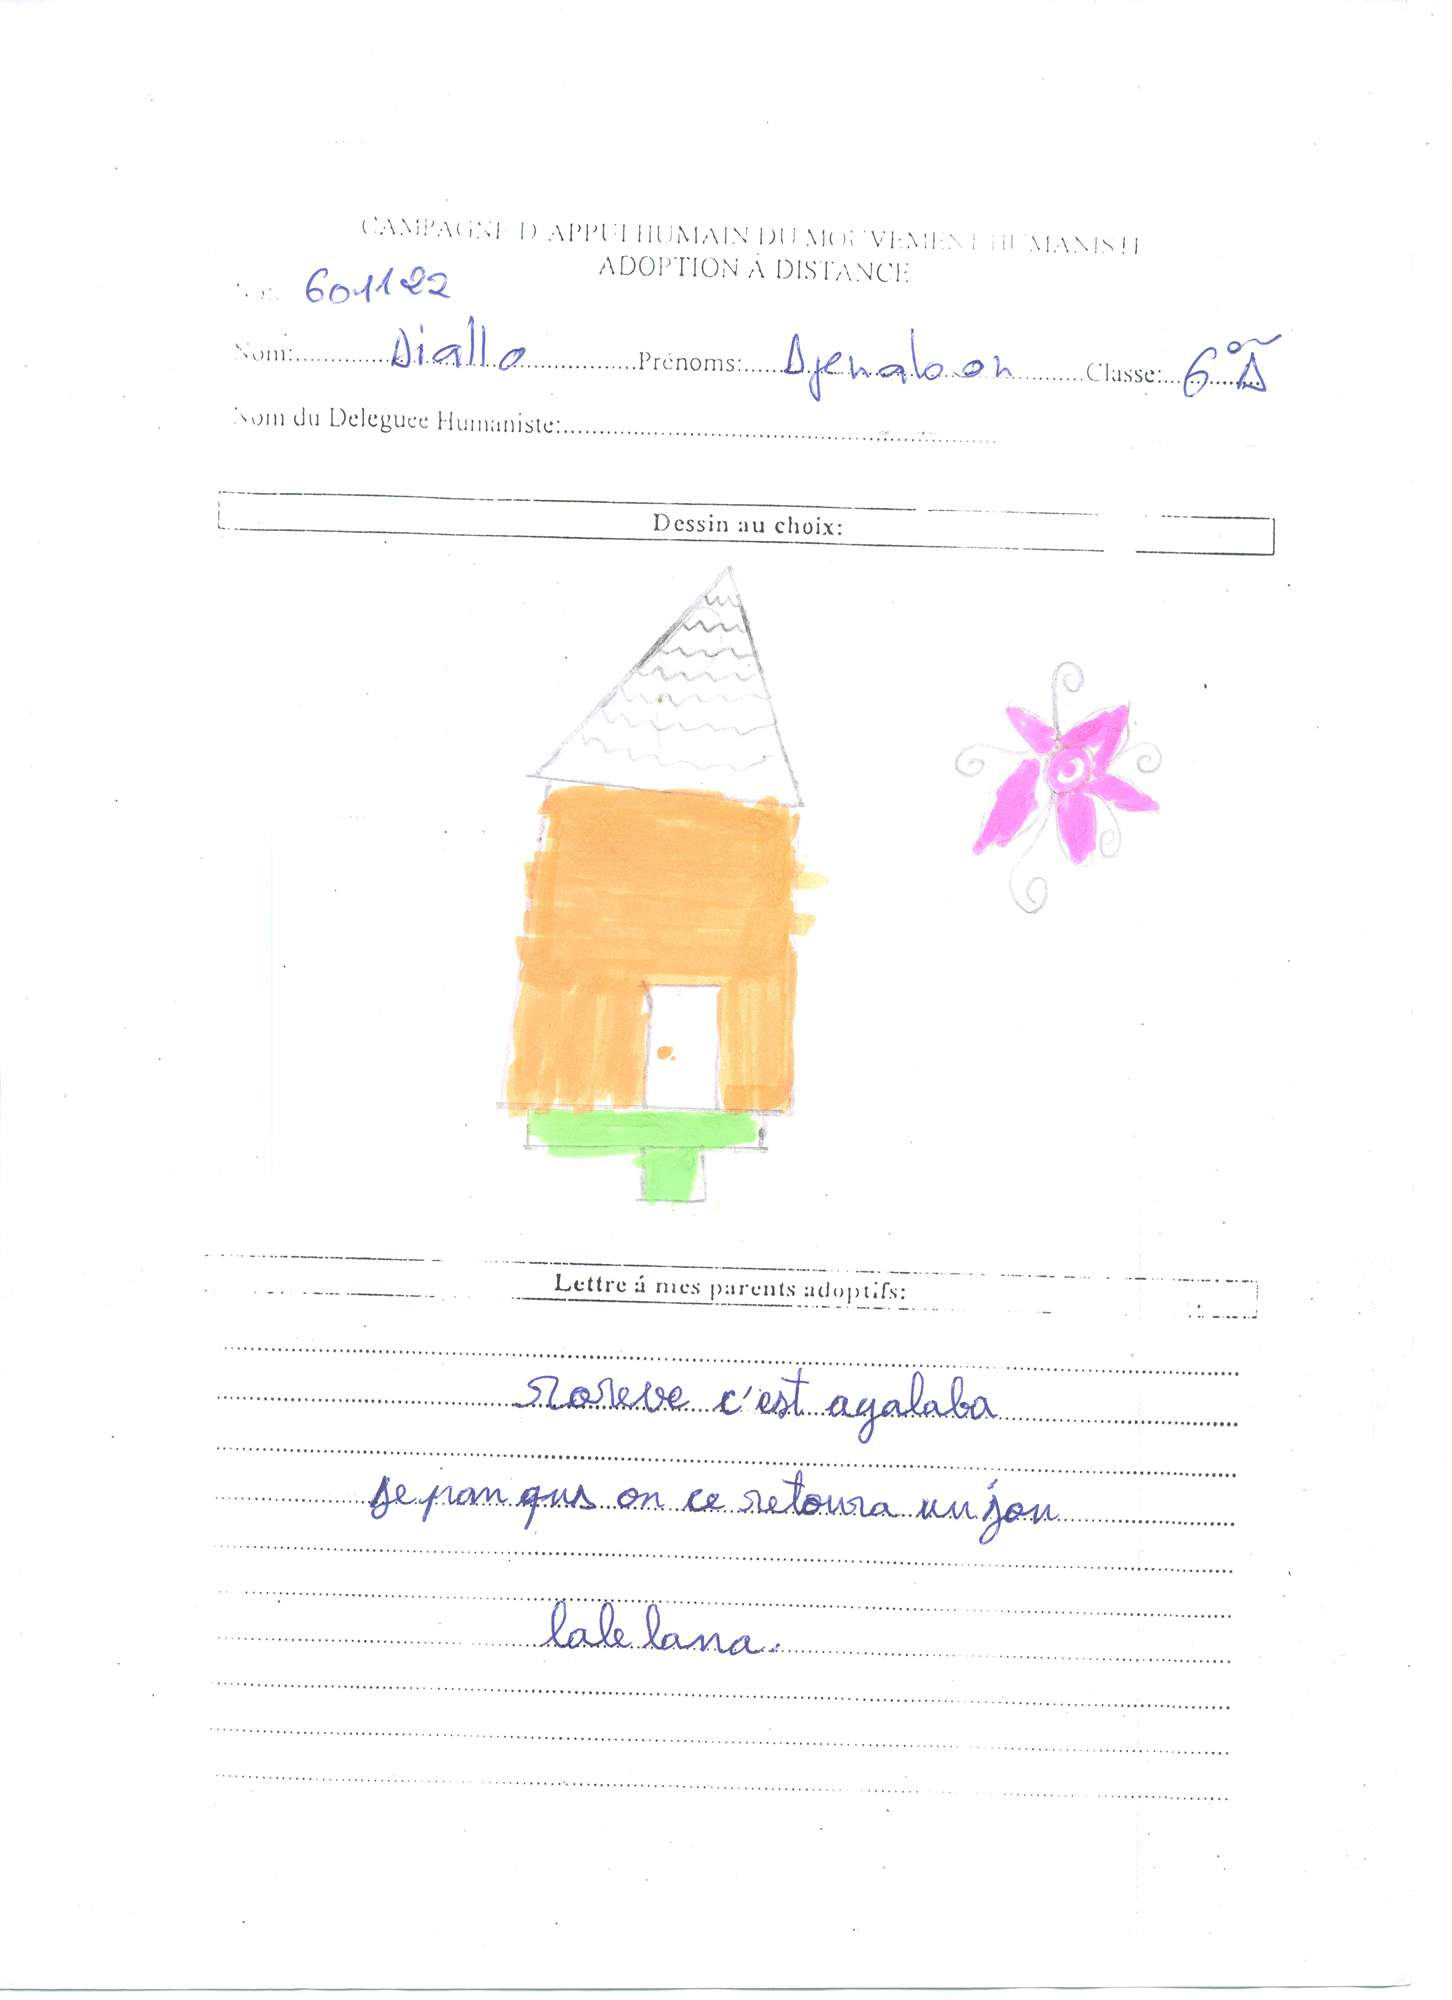 CAMPAGNE D'APPUI HUMAIN DU MOUVEMENT HUMANISTE
ADOPTION À DISTANCE
601122
Nom: Diallo Prénoms: Djenaboon Classe: 6°
Nom du Deleguee Humaniste:
Dessin au choix:
Lettre á mes parents adoptifs:
c'est ayalaba
on ce retoura un jon
lale lana.